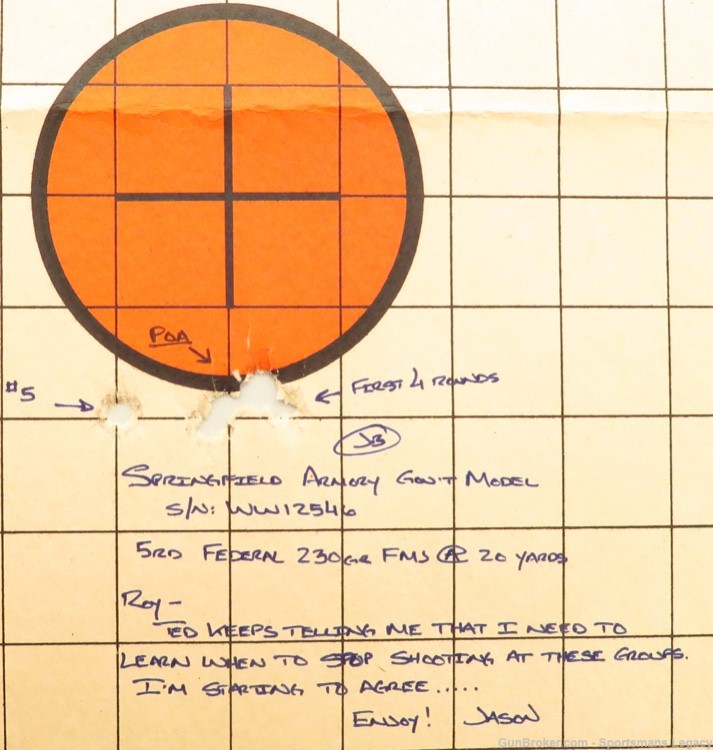 POA
#5
FIRST 4 ROUNDS
JB
SPRINGFIELD ARMORY GOV'T MODEL
S/N: WW12546
5RD FEDERAL 230GR FMJ @ 20 YARDS
ROY-
ED KEEPS TELLING ME THAT I NEED TO
LEARN WHEN TO STOP SHOOTING AT THESE GROUPS.
I'M STARTING TO AGREE.....
ENJOY! JASON
GunBroker.com - Sportsmans Legacy